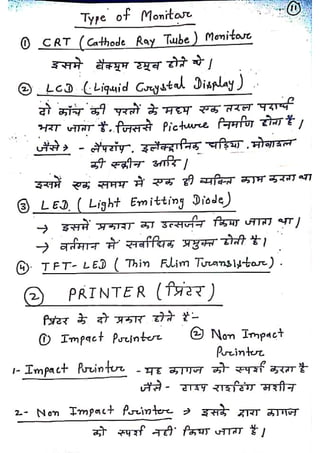 Type of Monitor
11
① CRT (Cathode Ray Tube) Monitor
इसमें वैक्यूम ट्यूब होते थे।
② LCD (Liquid Crystal Display)
दो काँच की परतों के मध्य एक तरल पदार्थ
भरा जाता है, जिससे Picture निर्माण होता है।
जैसे → - लैपटॉप, इलेक्ट्रानिक घड़िया, मोबाइल
की स्क्रीन आदि।
इसमें एक समय में एक ही व्यक्ति काम करता था
③ LED (Light Emitting Diode)
→ इसमें प्रकाश का उत्सर्जन किया जाता था।
→ वर्तमान में सर्वाधिक प्रयुक्त होती है।
④ TFT-LED (Thin Flim Transistor).
② PRINTER (प्रिंटर)
प्रिंटर के दो प्रकार होते हैं:-
① Impact Printer ② Non Impact
Printer
1- Impact Printer - यह कागज को स्पर्श करता है
जैसे - टाइप राइटिंग मशीन
2- Non Impact Printer → इसके द्वारा कागज
को स्पर्श नहीं किया जाता है।